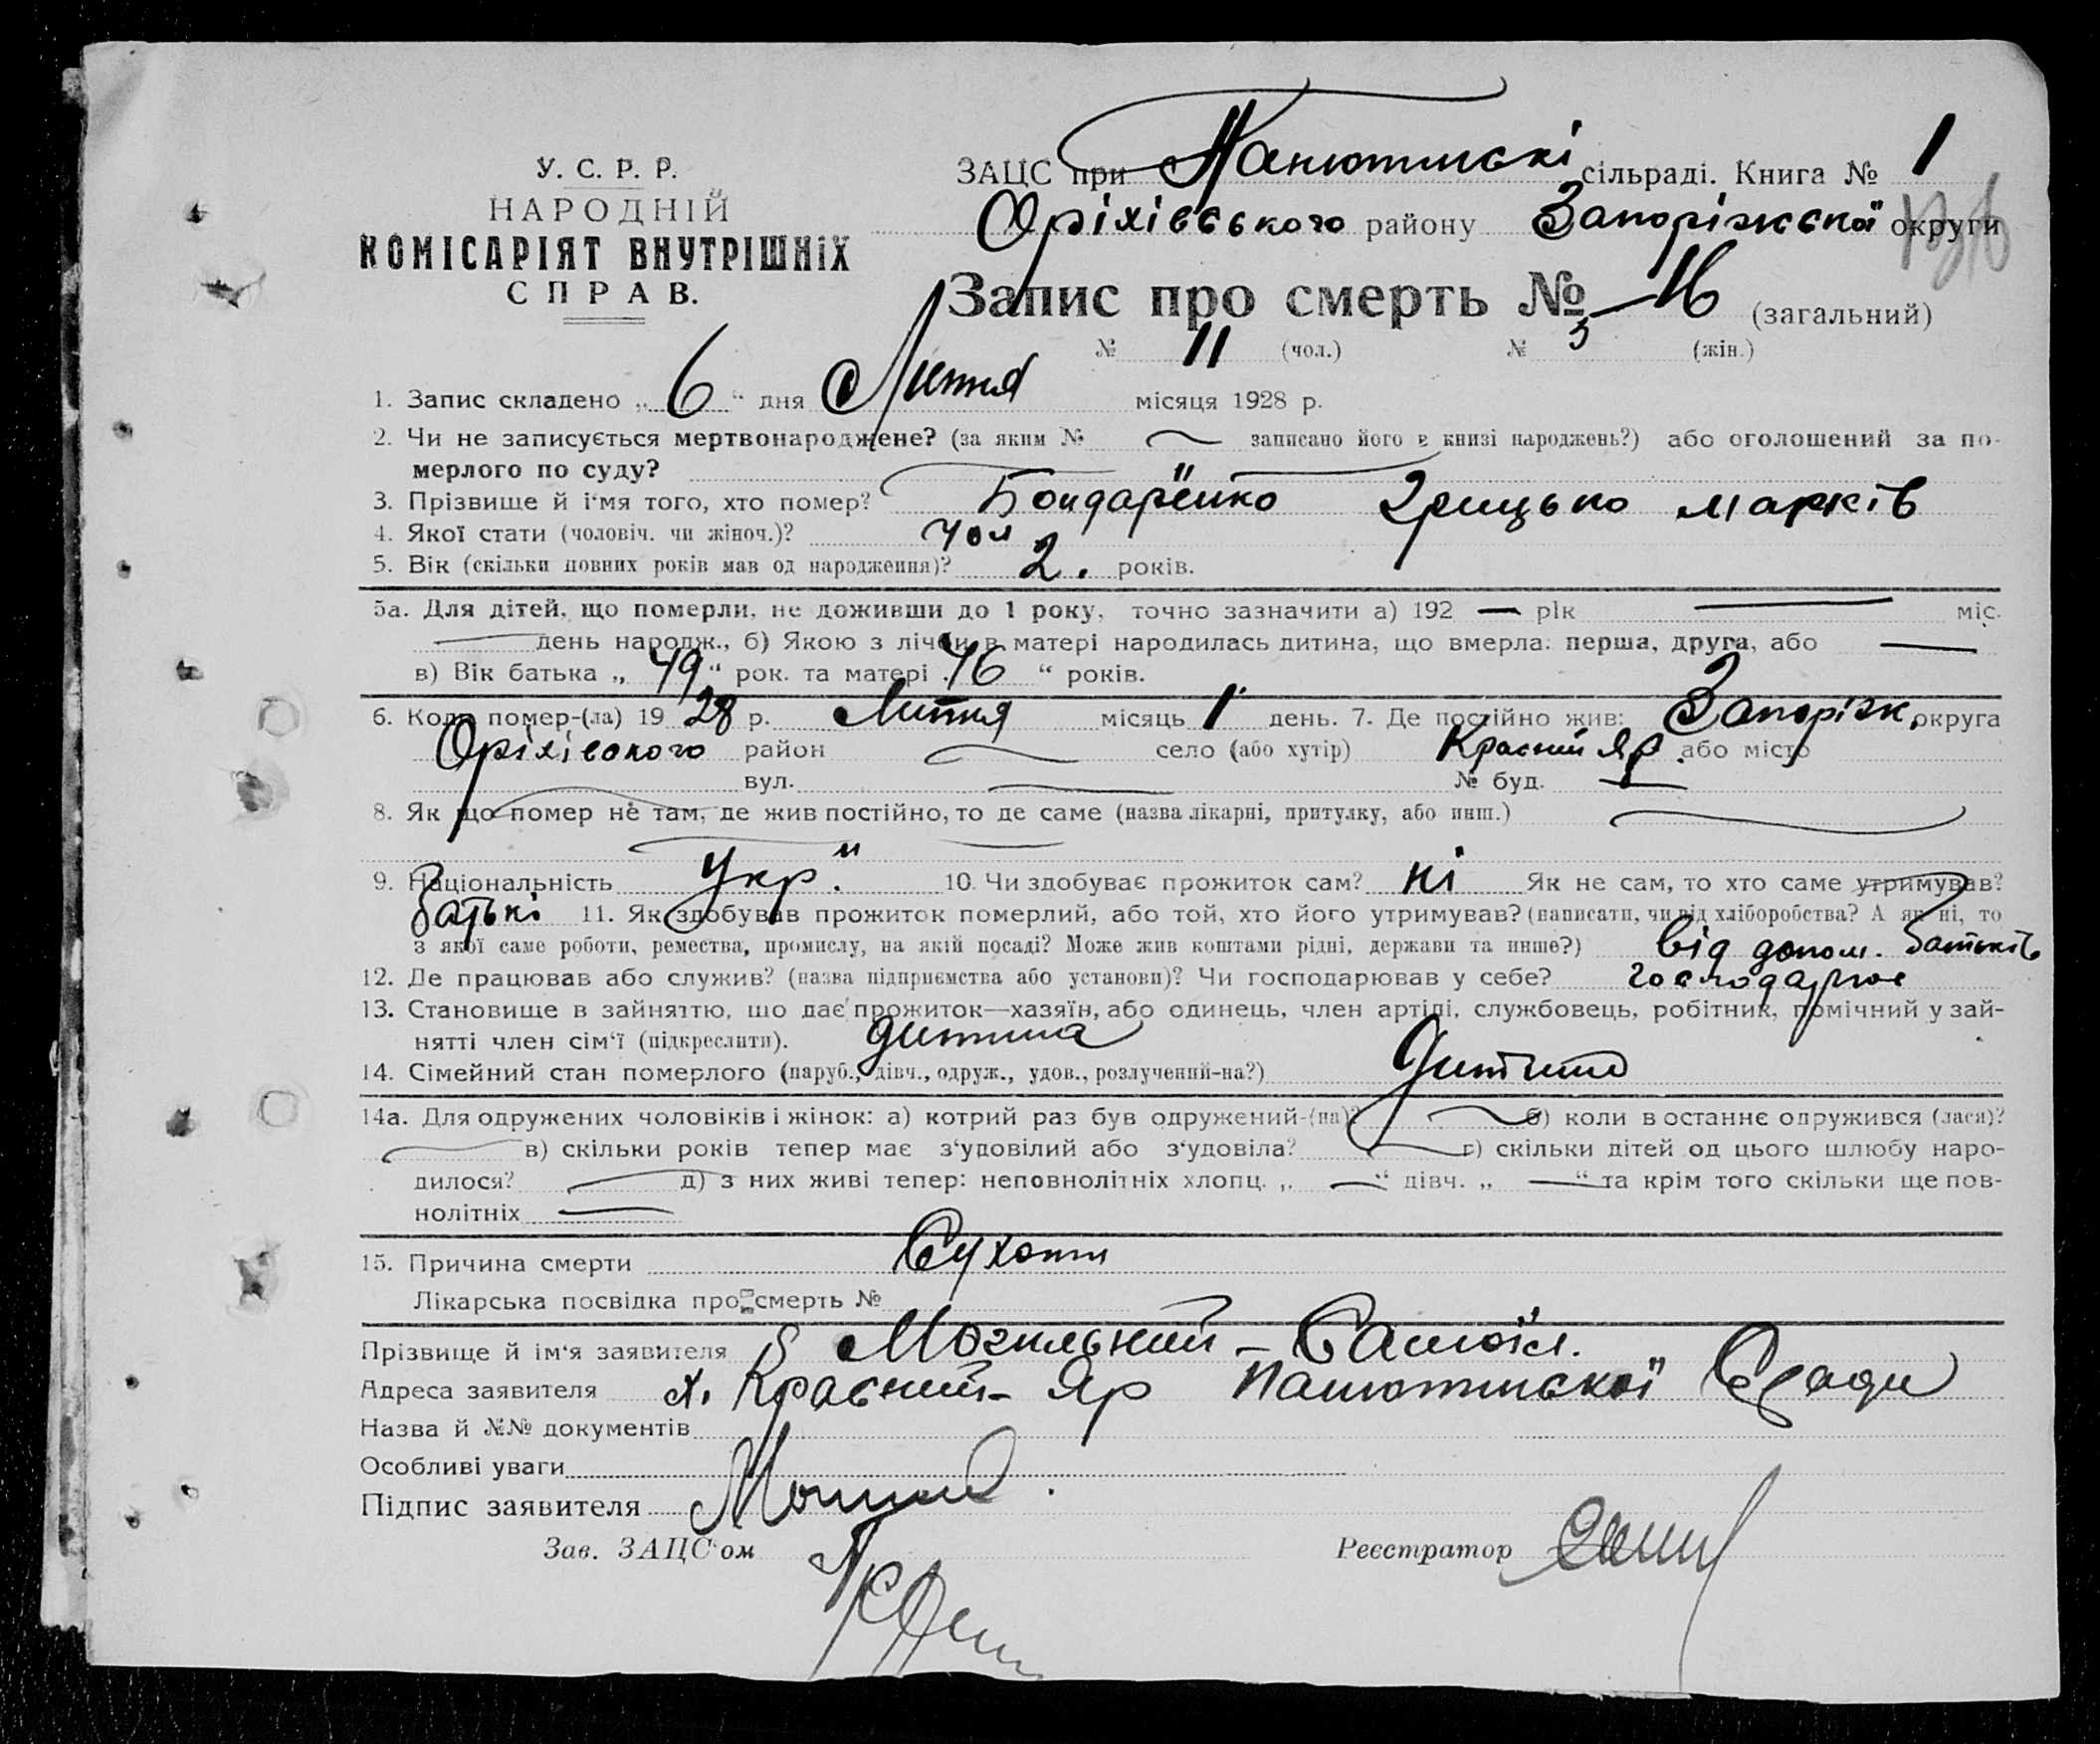 У. С. Р. Р.
НАРОДНІЙ
КОМІСАРІЯТ ВНУТРІШНІХ
СПРАВ.
ЗАЦС при Панютинскі сільраді. Книга № 1
Оріхівського району Запоріжської округи
Запис про смерть № 16 (загальний)
№ 11 (чол.) № 5 (жін.)
1. Запис складено „ 6 “ дня Липня місяця 1928 р.
2. Чи не записується мертвонароджене? (за яким № записано його в книзі народжень?) або оголошений за по-
мерлого по суду?
3. Прізвище й і‘мя того, хто помер? Бондаренко Грицько Марків
4. Якої стати (чоловіч. чи жіноч.)? чол
5. Вік (скільки повних років мав од народження)? 2. років.
5а. Для дітей, що померли, не доживши до 1 року, точно зазначити а) 192 — рік — міс.
— день народж., б) Якою з лічби в матері народилась дитина, що вмерла: перша, друга, або —
в) Вік батька „ 49 “ рок. та матері „ 46 “ років.
6. Коли помер-(ла) 19 28 р. Липня місяць 1 день. 7. Де постійно жив: Запоріж. округа
Оріхівского район село (або хутір) Красний Яр. або місто
вул. № буд. —
8. Як що помер не там, де жив постійно, то де саме (назва лікарні, притулку, або инш.)
9. Національність Укр. 10. Чи здобуває прожиток сам? ні Як не сам, то хто саме утримував?
батькі 11. Як здобував прожиток померлий, або той, хто його утримував? (написати, чи від хліборобства? А як ні, то
з якої саме роботи, ремества, промислу, на якій посаді? Може жив коштами рідні, держави та инше?) від допом. батьків
12. Де працював або служив? (назва підприємства або установи)? Чи господарював у себе? господарює
13. Становище в зайняттю, що дає прожиток—хазяїн, або одинець, член артілі, службовець, робітник, помічний у зай-
нятті член сім‘ї (підкреслити). дитина
14. Сімейний стан померлого (паруб., дівч., одруж., удов., розлучений-на?) Дитина
14а. Для одружених чоловіків і жінок: а) котрий раз був одружений-(на)? б) коли востаннє одружився (лася)?
в) скільки років тепер має з‘удовілий або з‘удовіла? г) скільки дітей од цього шлюбу наро-
дилося? д) з них живі тепер: неповнолітніх хлопц. „ — “ дівч. „ — “ та крім того скільки ще пов-
нолітніх —
15. Причина смерти Сухоти
Лікарська посвідка про смерть №
Прізвище й ім‘я заявителя Могильний - Самоїл.
Адреса заявителя х. Красний- Яр Панютинскої С/ради
Назва й №№ документів
Особливі уваги
Підпис заявителя
Зав. ЗАЦС‘ом
Реєстратор